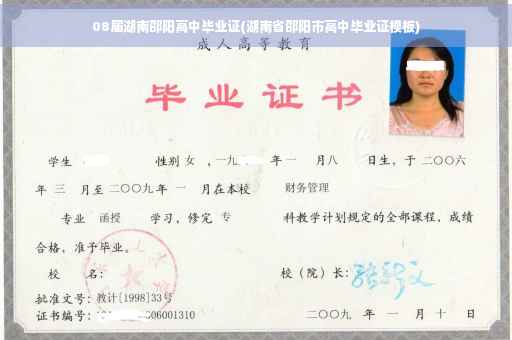 08届湖南邵阳高中毕业证(湖南省邵阳市高中毕业证模板)
成人高等教育
毕业证书
学生 性别 女 ,一九 年 一 月八 日生,于 二〇〇六
年 三 月至二〇〇九年 一 月在本校 财务管理
专业 函授 学习,修完 专 科教学计划规定的全部课程,成绩
合格,准予毕业。
校 名: 校(院)长:
批准文号:教计[1998]33号
证书编号: 06001310 二〇〇九 年 一 月 十 日